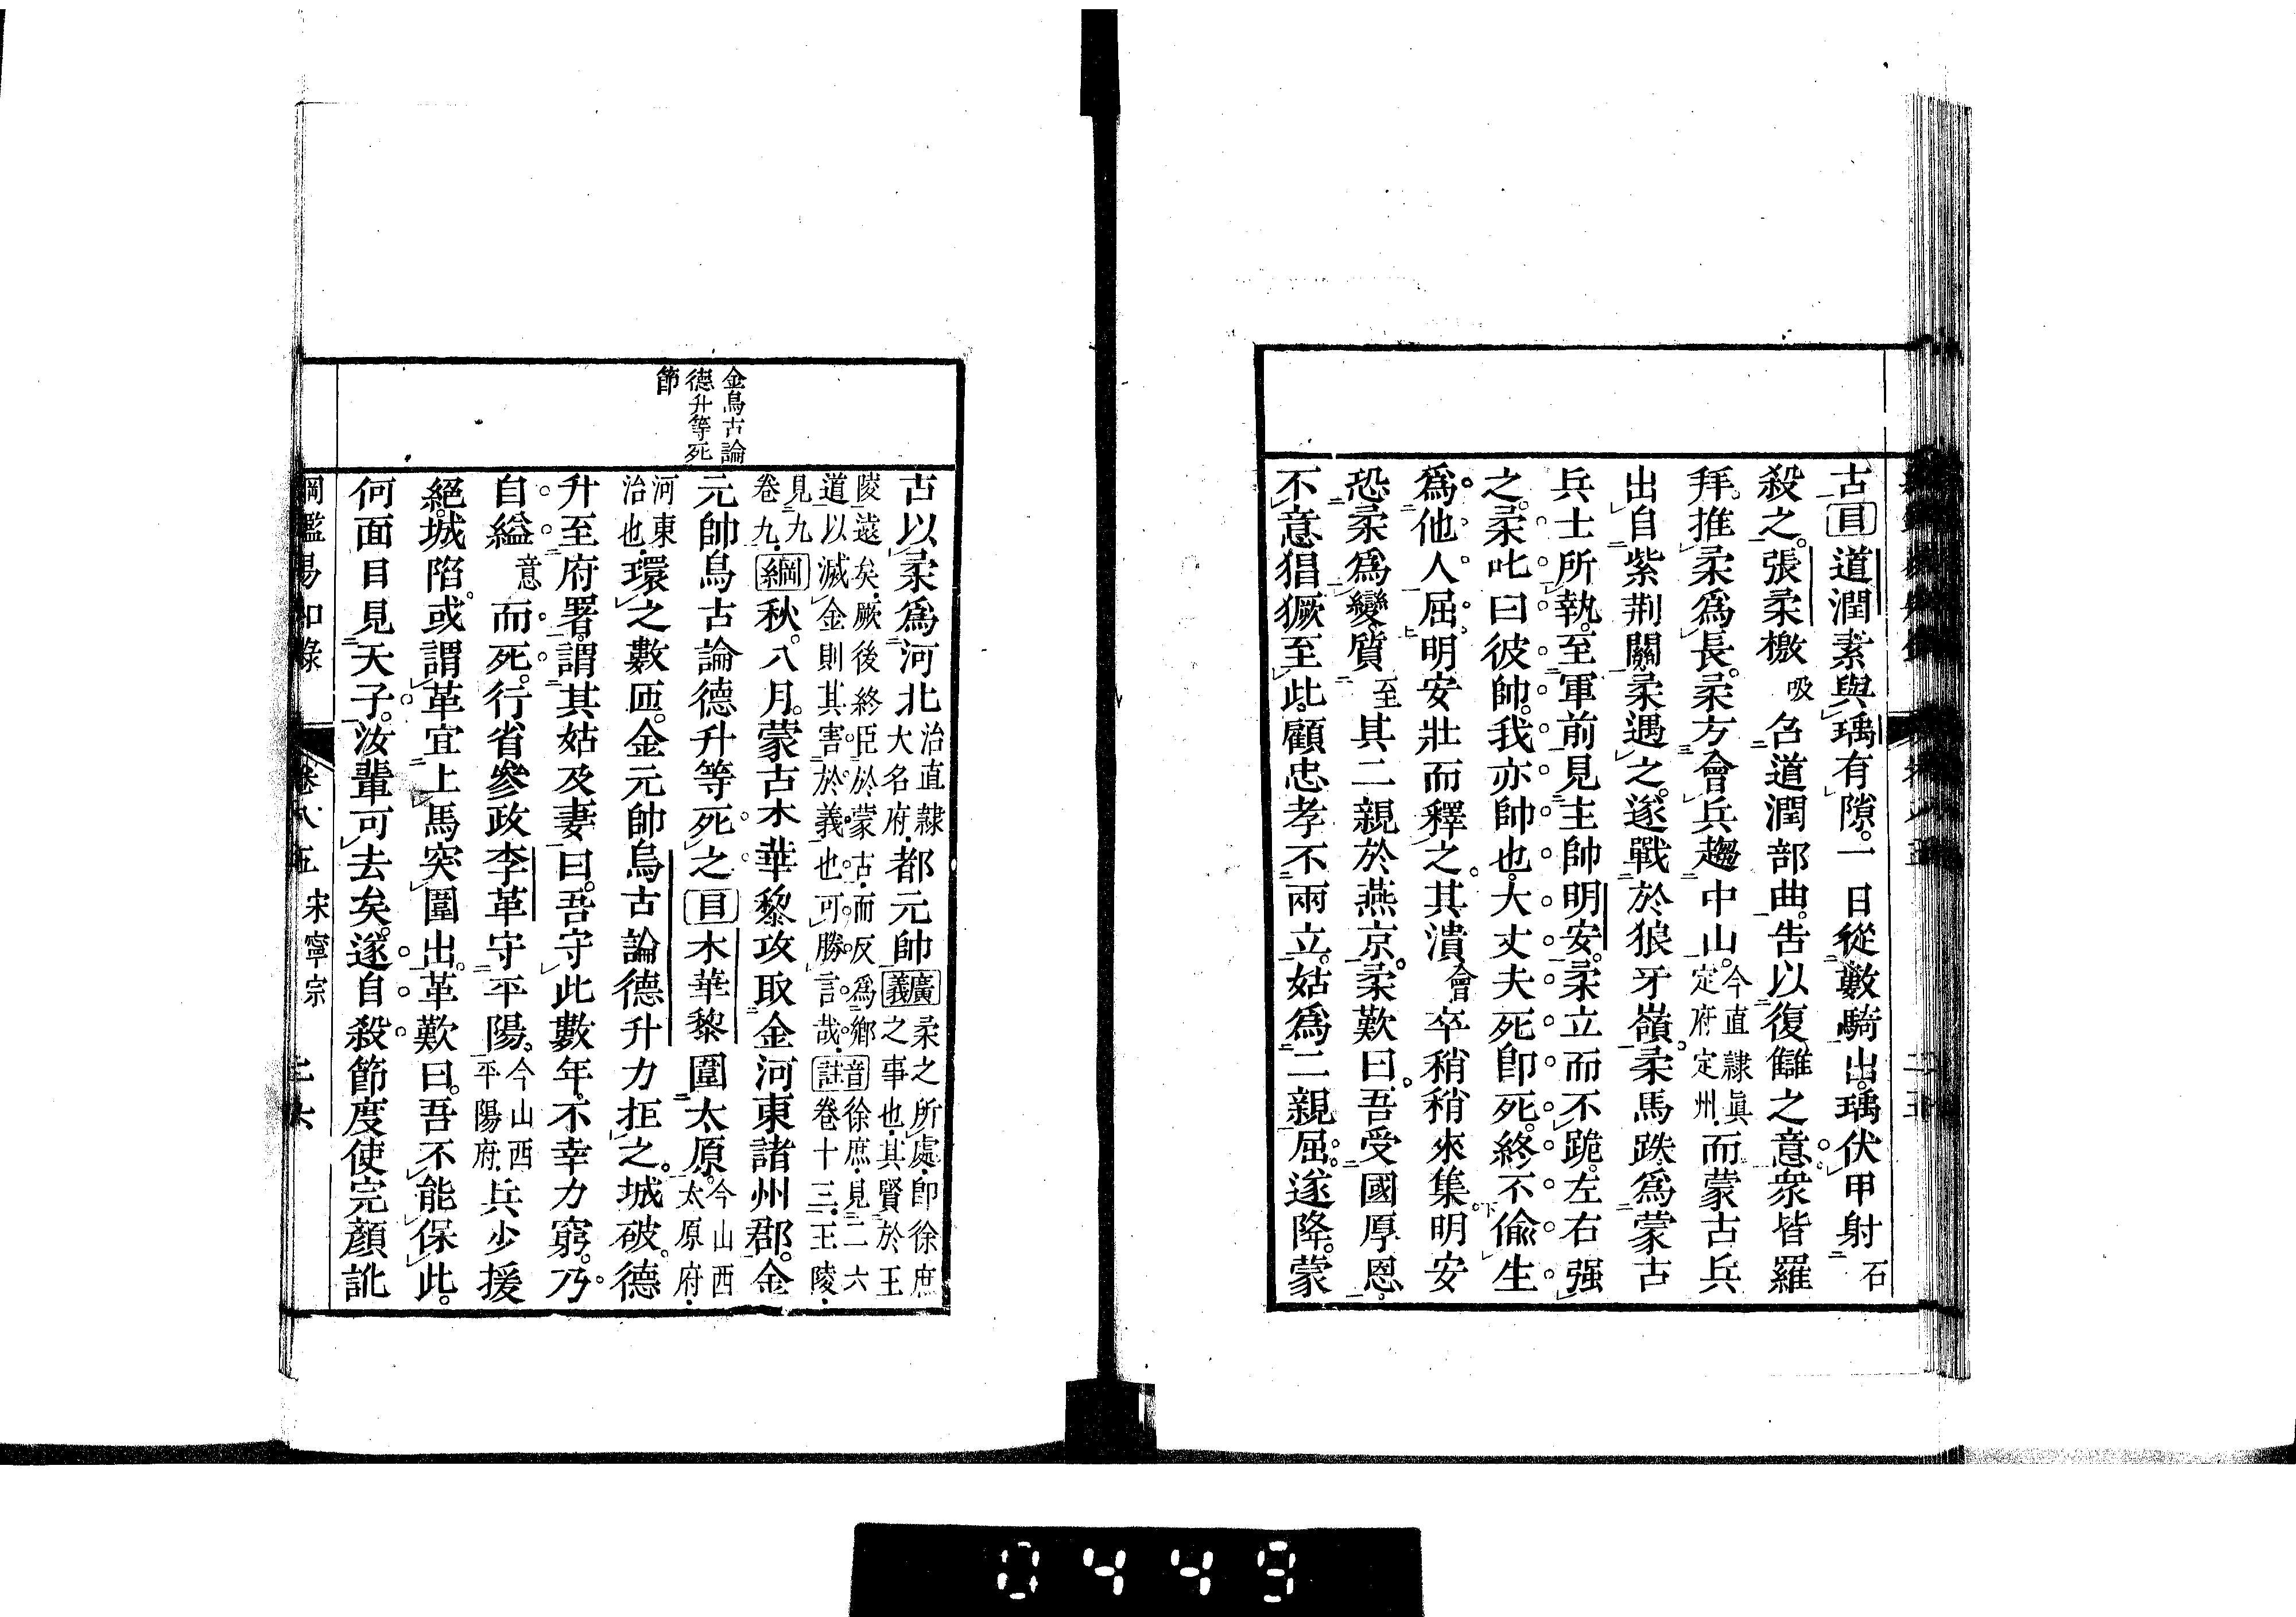 古目道潤素與瑀有隙。一日從數騎出。瑀伏甲射石
殺之。張柔檄吸召道潤部曲。吿以復讎之意。衆皆羅
拜。推柔爲長。柔方會兵趨中山。今直隸眞定府定州。而蒙古兵
出自紫荆關。柔遇之。遂戰於狼牙嶺。柔馬跌。爲蒙古
兵士所執。至軍前見主帥明安。柔立而不跪。左右强
之。柔叱曰彼帥。我亦帥也。大丈夫死卽死。終不偸生
爲他人屈。明安壯而釋之。其潰會卒稍稍來集。明安
恐柔爲變。質至其二親於燕京。柔歎曰。吾受國厚恩。
不意猖獗至此。顧忠孝不兩立。姑爲二親屈。遂降。蒙
金烏古論
德升等死
節
古以柔爲河北治直隸大名府。都元帥廣義柔之所處。卽徐庶之事也。其賢於王
陵遠矣。厥後終臣於蒙古。而反爲鄕道以滅金則其害於義也。可勝言哉。音註徐庶。見二六卷十三。王陵。
見九卷九。綱秋。八月。蒙古木華黎攻取金河東諸州郡。金
元帥烏古論德升等死之目木華黎圍太原。今山西太原府。
河東治也。環之數匝。金元帥烏古論德升力拒之。城破。德
升至府署。謂其姑及妻曰。吾守此數年。不幸力窮。乃
自縊意而死。行省參政李革守平陽。今山西平陽府。兵少援
絕。城陷。或謂革宜上馬突圍出。革歎曰。吾不能保此。
何面目見天子。汝輩可去矣。遂自殺節度使完顏訛
綱鑑易知錄 卷八五 宋寧宗 二六